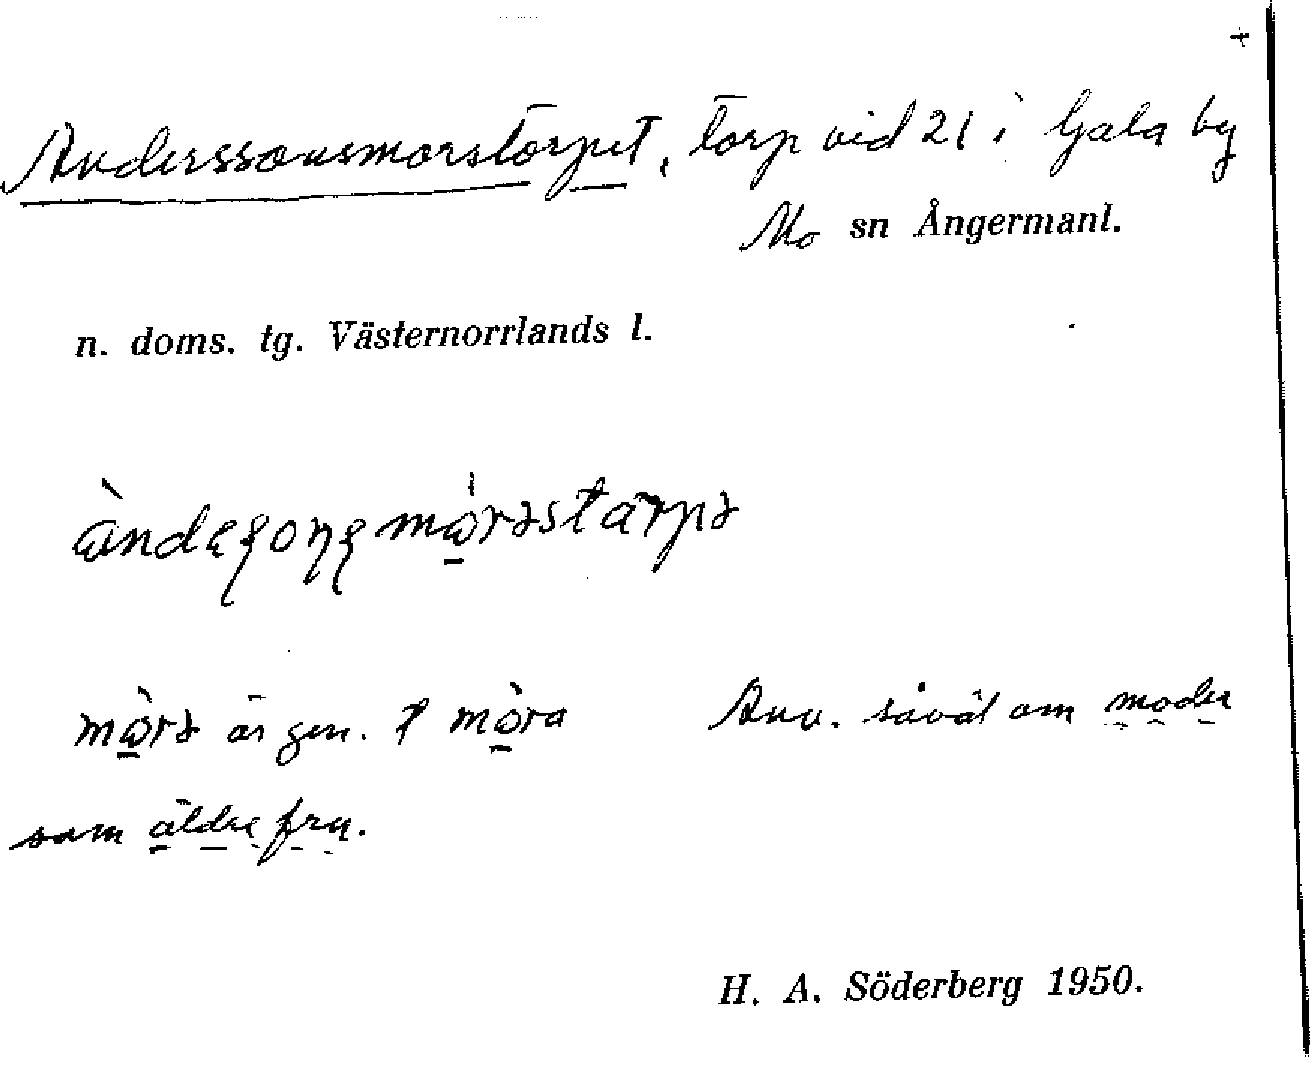 +
Anderssonsmorstorpet, torp vid 21 i Gala by
Mo sn Ångermanl.
n. doms. tg. Västernorrlands l.
mòrə är gen. t mòra Anv. såväl om moder
som äldre fru.
H. A. Söderberg 1950.